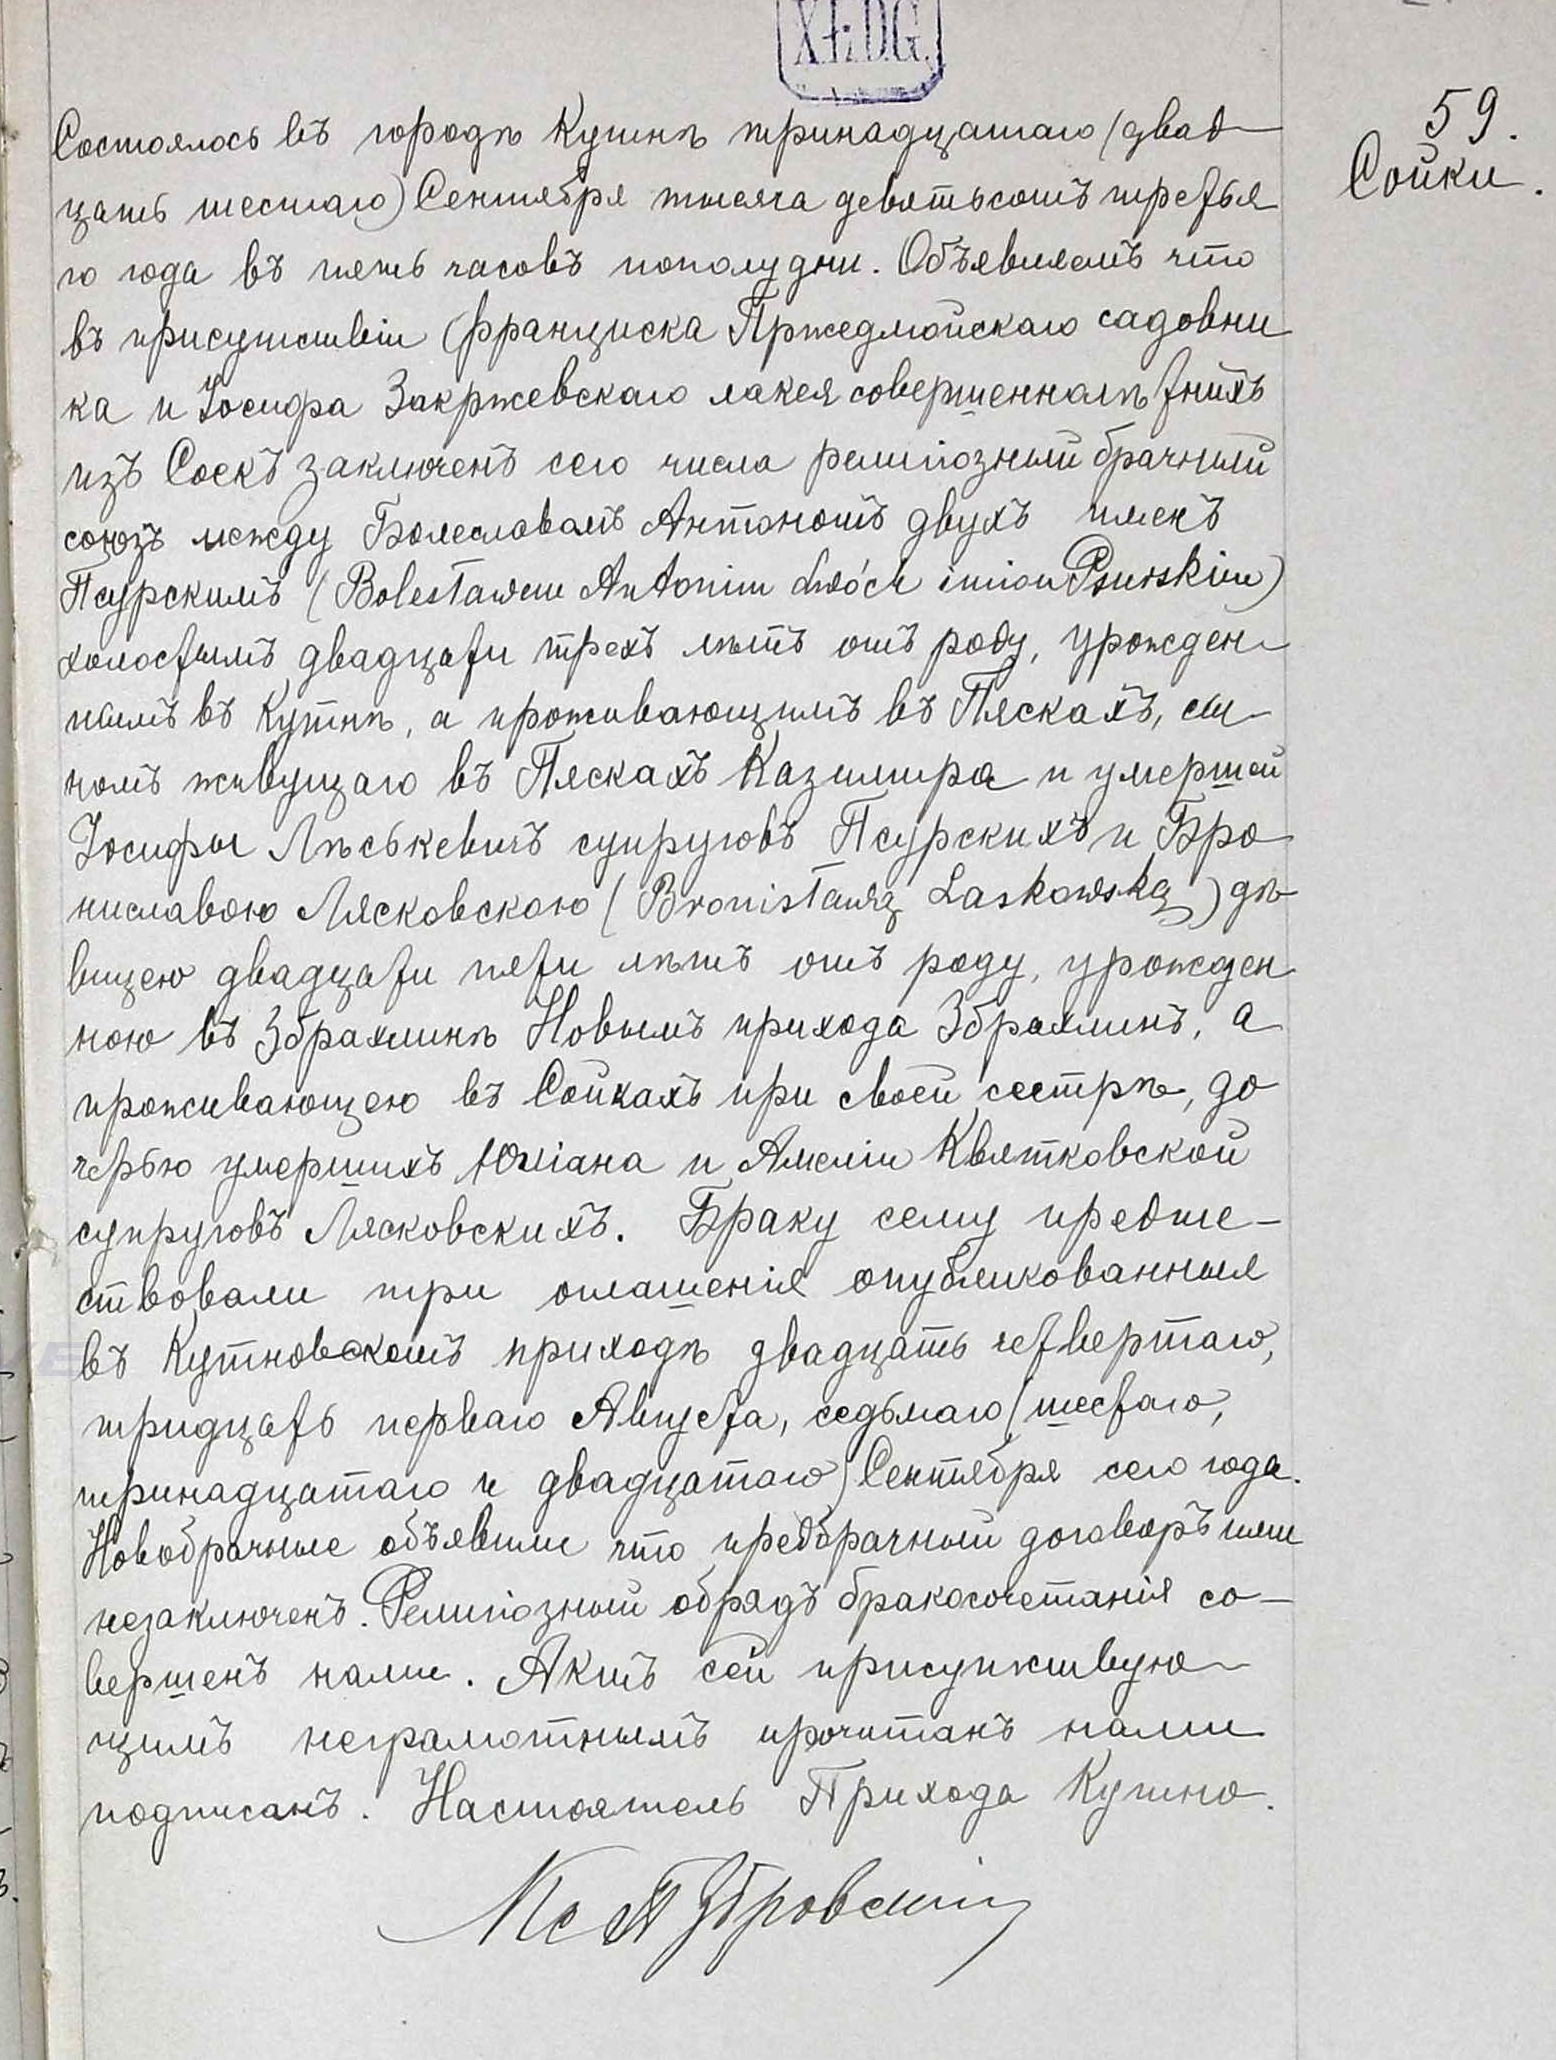 X.Ł.D.G.
59.
Сойки.
Состоялось въ городѣ Кутнѣ тринадцатаго (двад-
цать шестаго) Сентября тысяча девятьсотъ третья
го года въ пять часовъ пополудни. Объявляемъ что
въ присутствіи Франциска Пржедмойскаго садовни
ка и Іосифа Закржевскаго лакея совершеннолѣтнихъ
изъ Соекъ заключенъ сего числа религіозный брачный
союзъ между Болеславомъ Антономъ двухъ именъ
Псурскимъ (Bolesławem Antonim dwóch imion Psurskim)
холостымъ двадцати трехъ лѣтъ отъ роду, урожден-
нымъ въ Кутнѣ, а проживающимъ въ Пяскахъ, сы-
номъ живущаго въ Пяскахъ Казимира и умершей
Іосифы Лѣськевичъ супруговъ Псурскихъ и Бро
ниславою Лясковскою (Bronisławą Laskowską) дѣ-
вицею двадцати пяти лѣтъ отъ роду, урожден
ною въ Збрахлинѣ Новымъ прихода Збрахлинъ, а
проживающею въ Сойкахъ при своей сестрѣ, до
черью умершихъ Юліана и Амеліи Квятковской
супруговъ Лясковскихъ. Браку сему предше-
ствовали три оглашенія опубликованныя
въ Кутновскомъ приходѣ двадцать четвертаго,
тридцать перваго Августа, седьмаго (шестаго,
тринадцатаго и двадцатаго) Сентября сего года.
Новобрачные объявили что предбрачный договоръ ими
незаключенъ. Религіозный обрядъ бракосочетанія со-
вершенъ нами. Актъ сей присутствую-
щимъ неграмотнымъ прочитанъ нами
подписанъ. Настоятель Прихода Кутно.